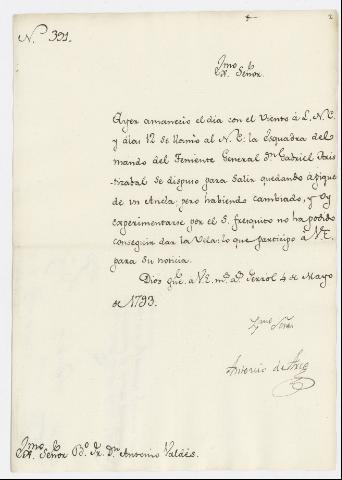 N.º 391.
Exmo. Señor.
Ayer amanecio el dia con el Viento à L. N. E.
y álas 12 de llamò al N. E. la Esquadra del
mando del Teniente General Dn. Gabriel Aris
tizabal se dispuso para salir quedando à pique
de un Ancla: pero habiendo cambiado, y oy
experimentarse por el S. fresquito no ha podido
conseguir dar la Vela: lo que participo à V.E.
para su noticia.
Dios gue. à V.E. ms. as. Ferrol 4 de Mayo
de 1793.
Exmo. Señor
Antonio de Arce
Exmo. Señor Bo. Fr. Dn. Antonio Valdés.